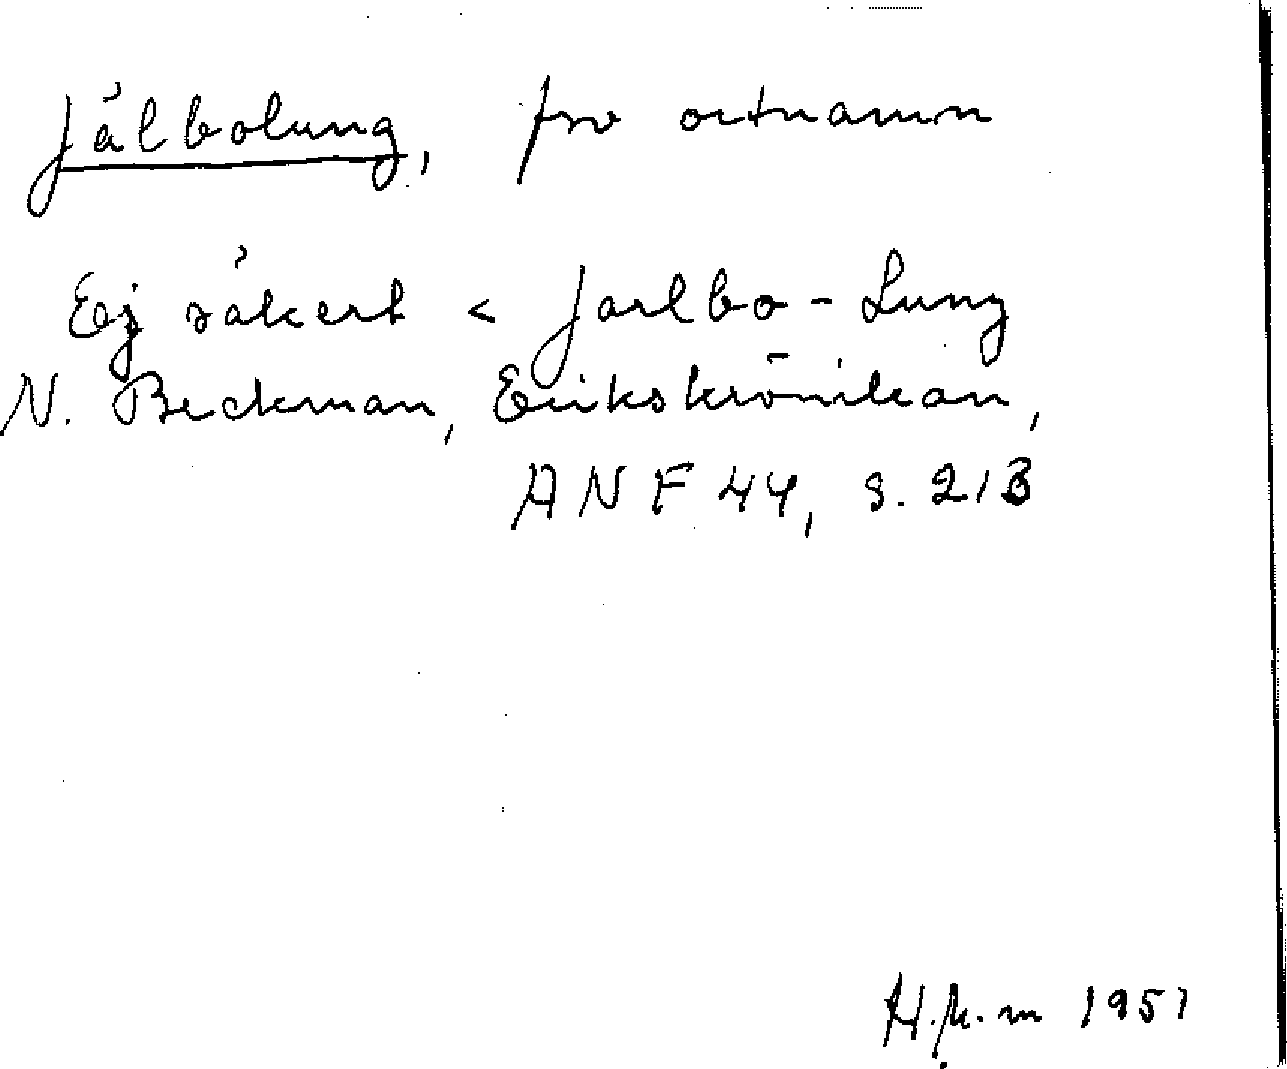 Jälbolung, fsv ortnamn
Ej säkert < Jarlbo-Lung
N. Beckman, Erikskrönikan,
ANF 44, s. 213
1951